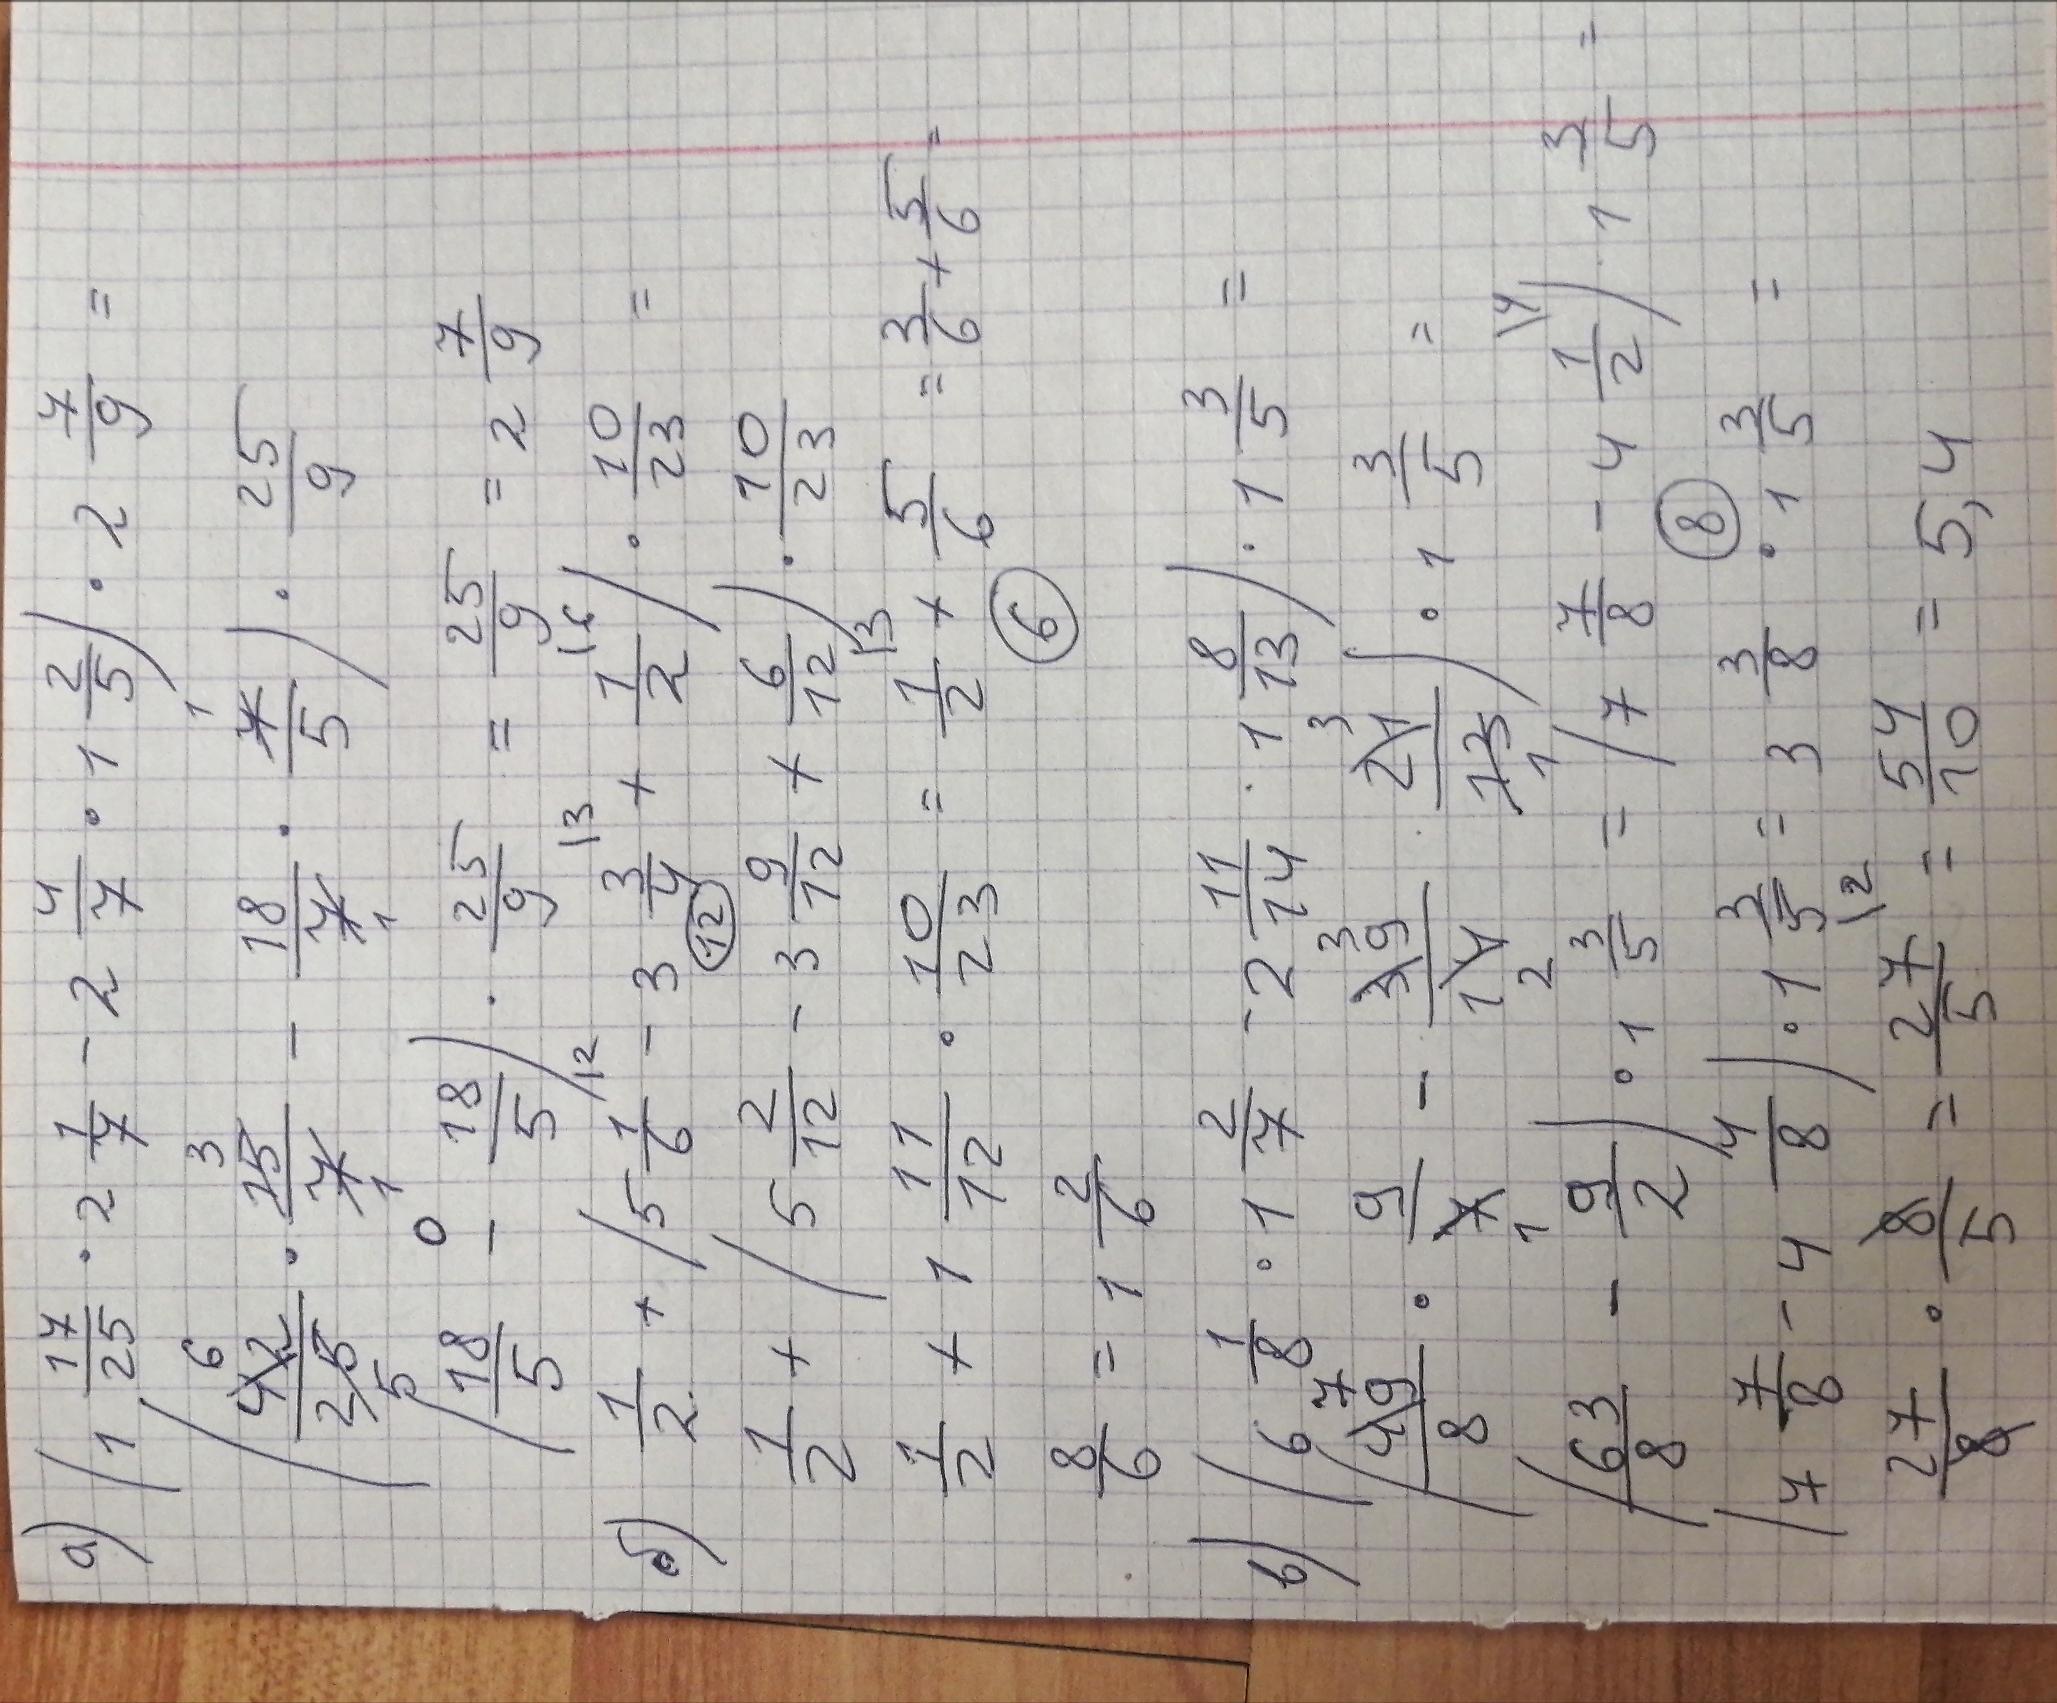 а) (1 17/25 · 2 1/7 - 2 4/7 · 1 2/5) · 2 7/9 =
(42/25 · 15/7 - 18/7 · 7/5) · 25/9
(18/5 - 18/5) · 25/9 = 25/9 = 2 7/9
б) 1/2 + (5 1/6 - 3 3/4 + 1/2) · 10/23 =
1/2 + (5 2/12 - 3 9/12 + 6/12) · 10/23
1/2 + 1 11/12 · 10/23 = 1/2 + 5/6 = 3/6 + 5/6 =
8/6 = 1 2/6
в) (6 1/8 · 1 2/7 - 2 11/14 · 1 8/13) · 1 3/5 =
(49/8 · 9/7 - 39/14 · 21/13) · 1 3/5 =
(63/8 - 9/2) · 1 3/5 = (7 7/8 - 4 1/2) · 1 3/5 =
(7 7/8 - 4 4/8) · 1 3/5 = 3 3/8 · 1 3/5 =
27/8 · 8/5 = 27/5 = 54/10 = 5,4